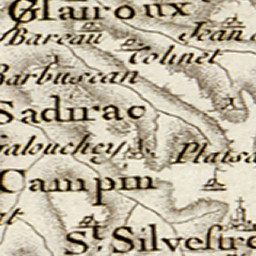 Glairoux
Bareau Jean
Colinet
Barbuscan
Sadirac
alouchey
Plaisa
Campin
at
St. Silvestre